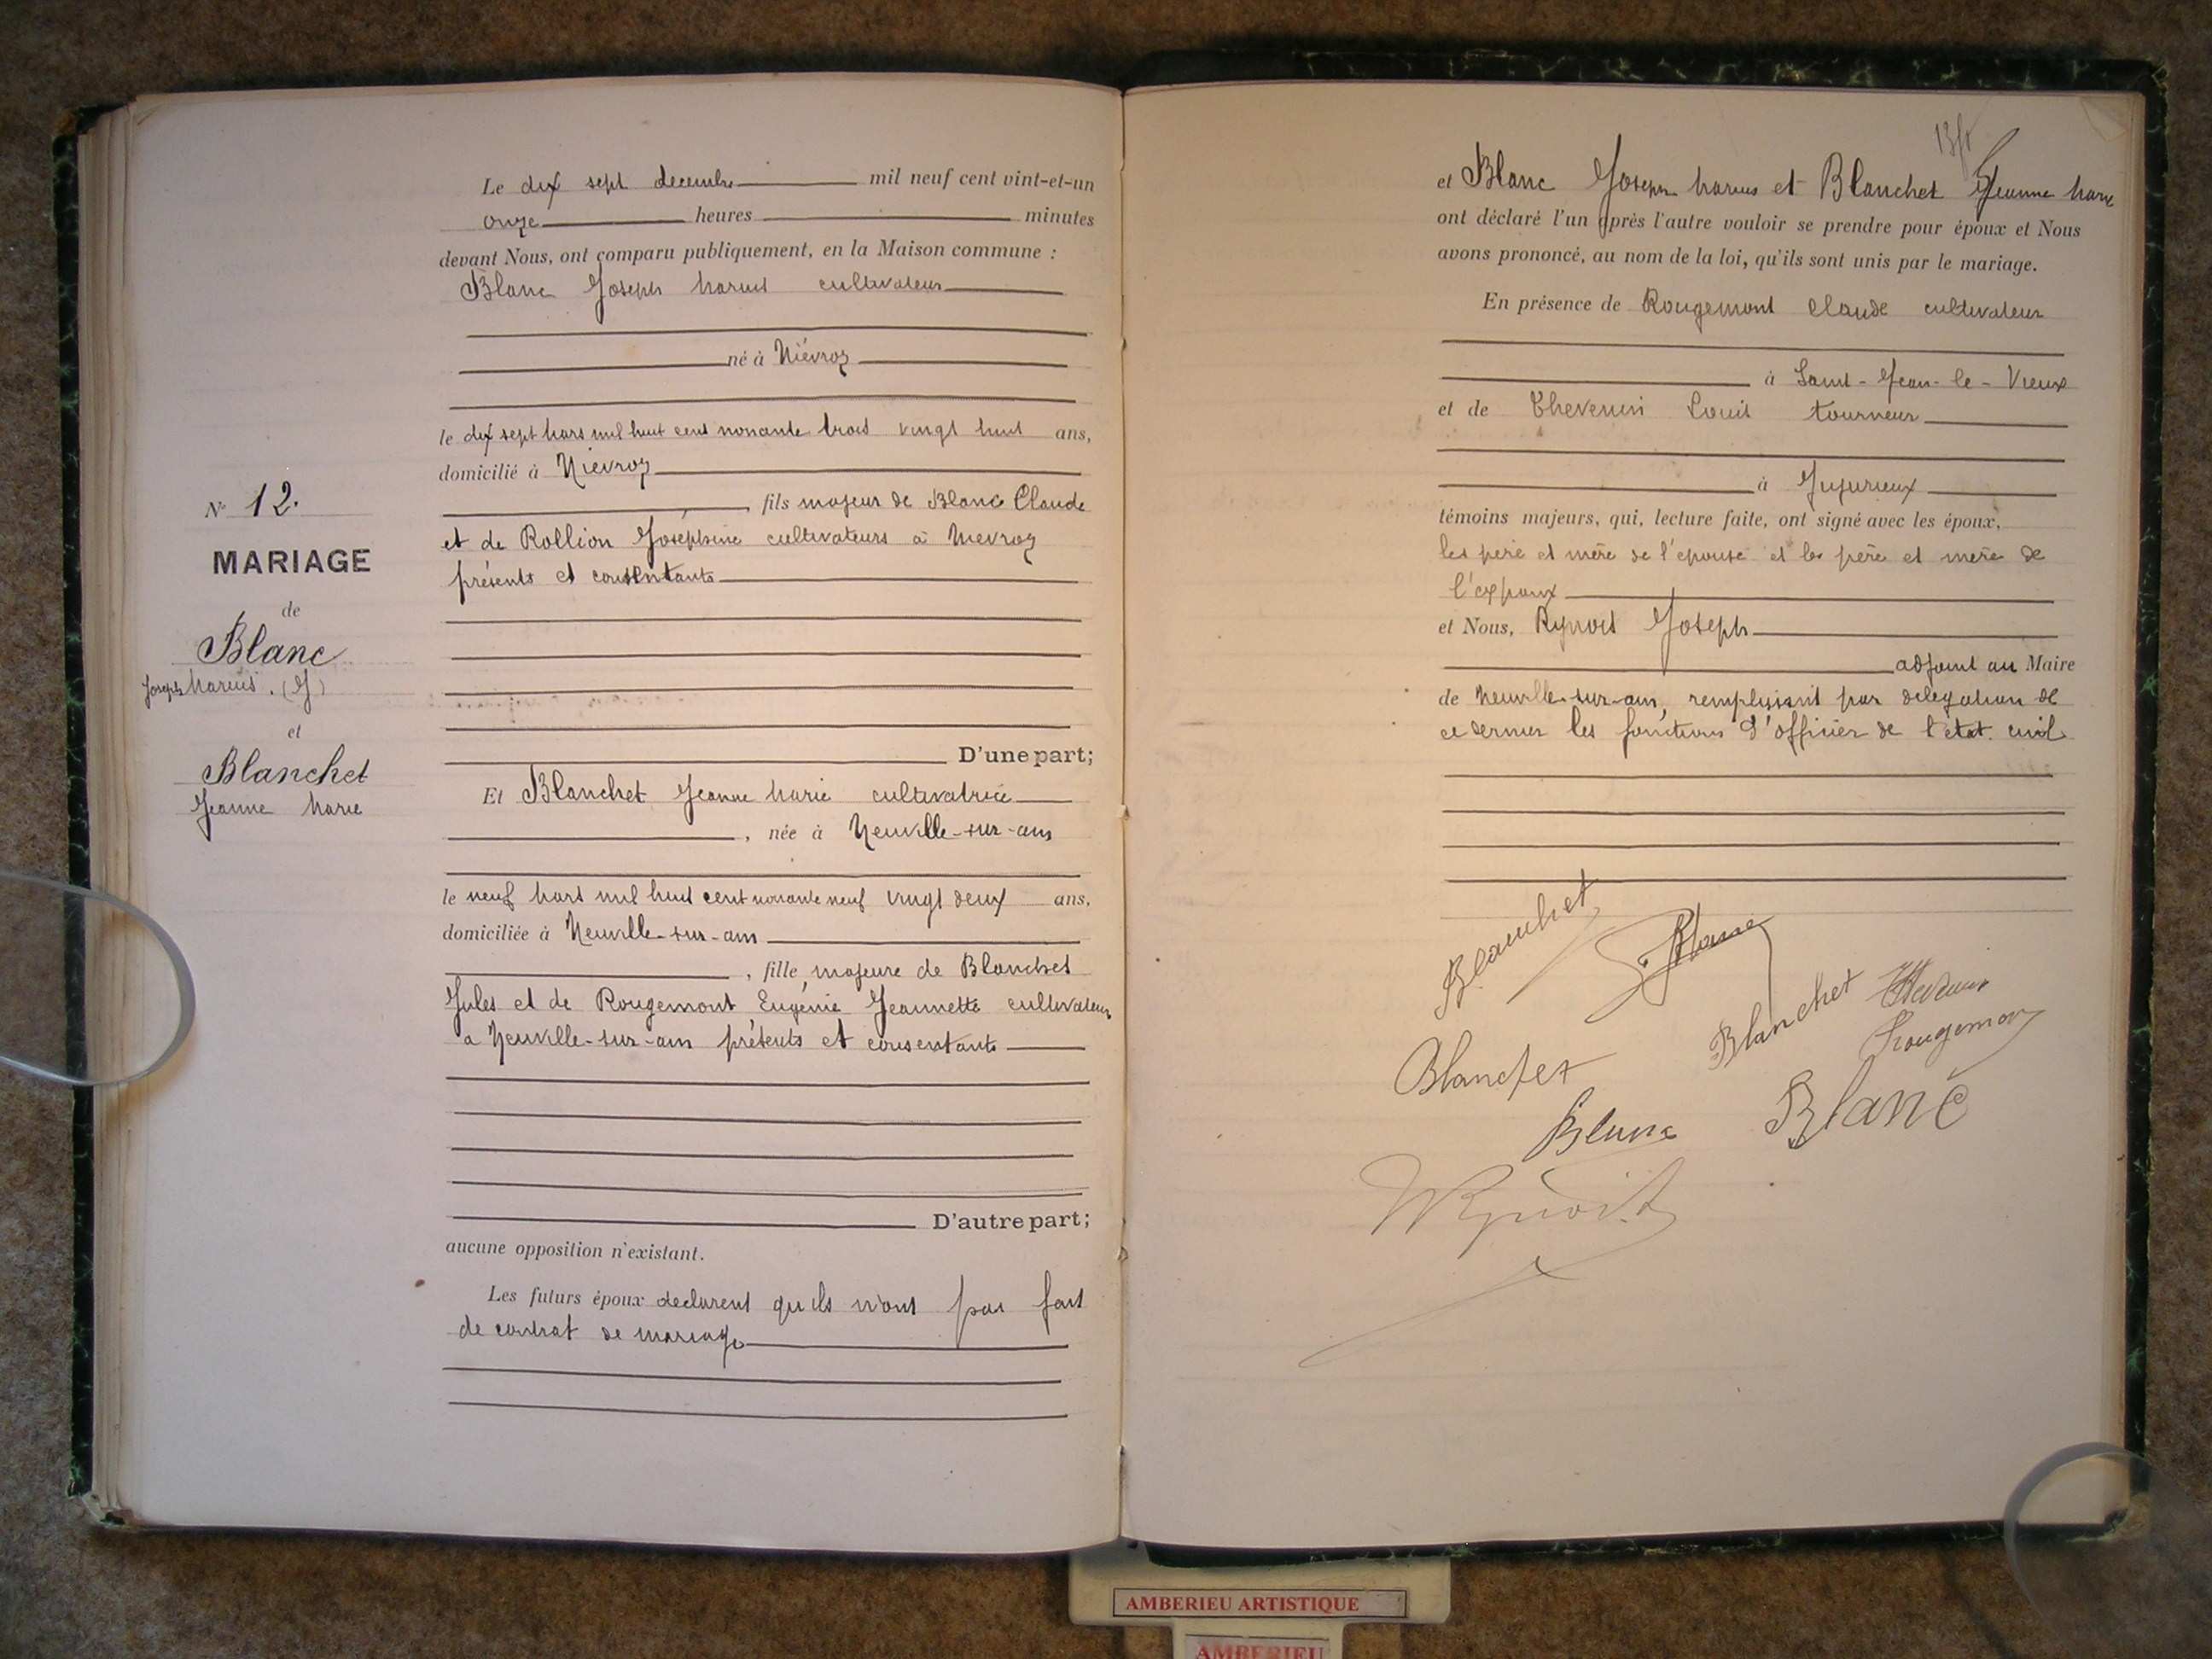 Le dix sept decembre mil neuf cent vint-et-un
onze heures minutes
devant Nous, ont comparu publiquement, en la Maison commune :
Blanc Joseph Marius cultivateur
né à Niévroz
le dix sept Mars mil huit cent nonante trois vingt huit ans,
domicilié à Niévroz
fils majeur de Blanc Claude
et de Rollion Joséphine cultivateurs à Nievroz
présents et consentants
D'une part;
Et Blanchet Jeanne Marie cultivatrice
, née à Neuville-sur-ain
le neuf Mars mil huit cent nonante neuf vingt deux ans,
domiciliée à Neuville-sur-ain
, fille majeure de Blanchet
Jules et de Rougemont Eugénie Jeannette cultivateurs
a Neuville-sur-ain présents et consentants
D'autre part;
aucune opposition n'existant.
Les futurs époux declarent qu'ils n'ont pas fait
de contrat de mariage
N° 12.
MARIAGE
de
Blanc
Joseph Marius. (J)
et
Blanchet
Jeanne Marie
et Blanc Joseph Marius et Blanchet Jeanne Marie
ont déclaré l'un après l'autre vouloir se prendre pour époux et Nous
avons prononcé, au nom de la loi, qu'ils sont unis par le mariage.
En présence de Rougemont Claude cultivateur
à Saint-Jean-le-Vieux
et de Thevenin Louis tourneur
à Jujurieux
témoins majeurs, qui, lecture faite, ont signé avec les époux,
les père et mère de l'epouse et les père et mère de
l'expoux
et Nous, Joseph
adjoint au Maire
de Neuville-sur-ain, remplissant par delegation de
ce dernier les fonctions d'officier de l'état civil
Blanchet
J. Blanc
Blanchet Thevenin
Rougemont
Blanchet
Blanc Blanc
AMBERIEU ARTISTIQUE
AMBERIEU